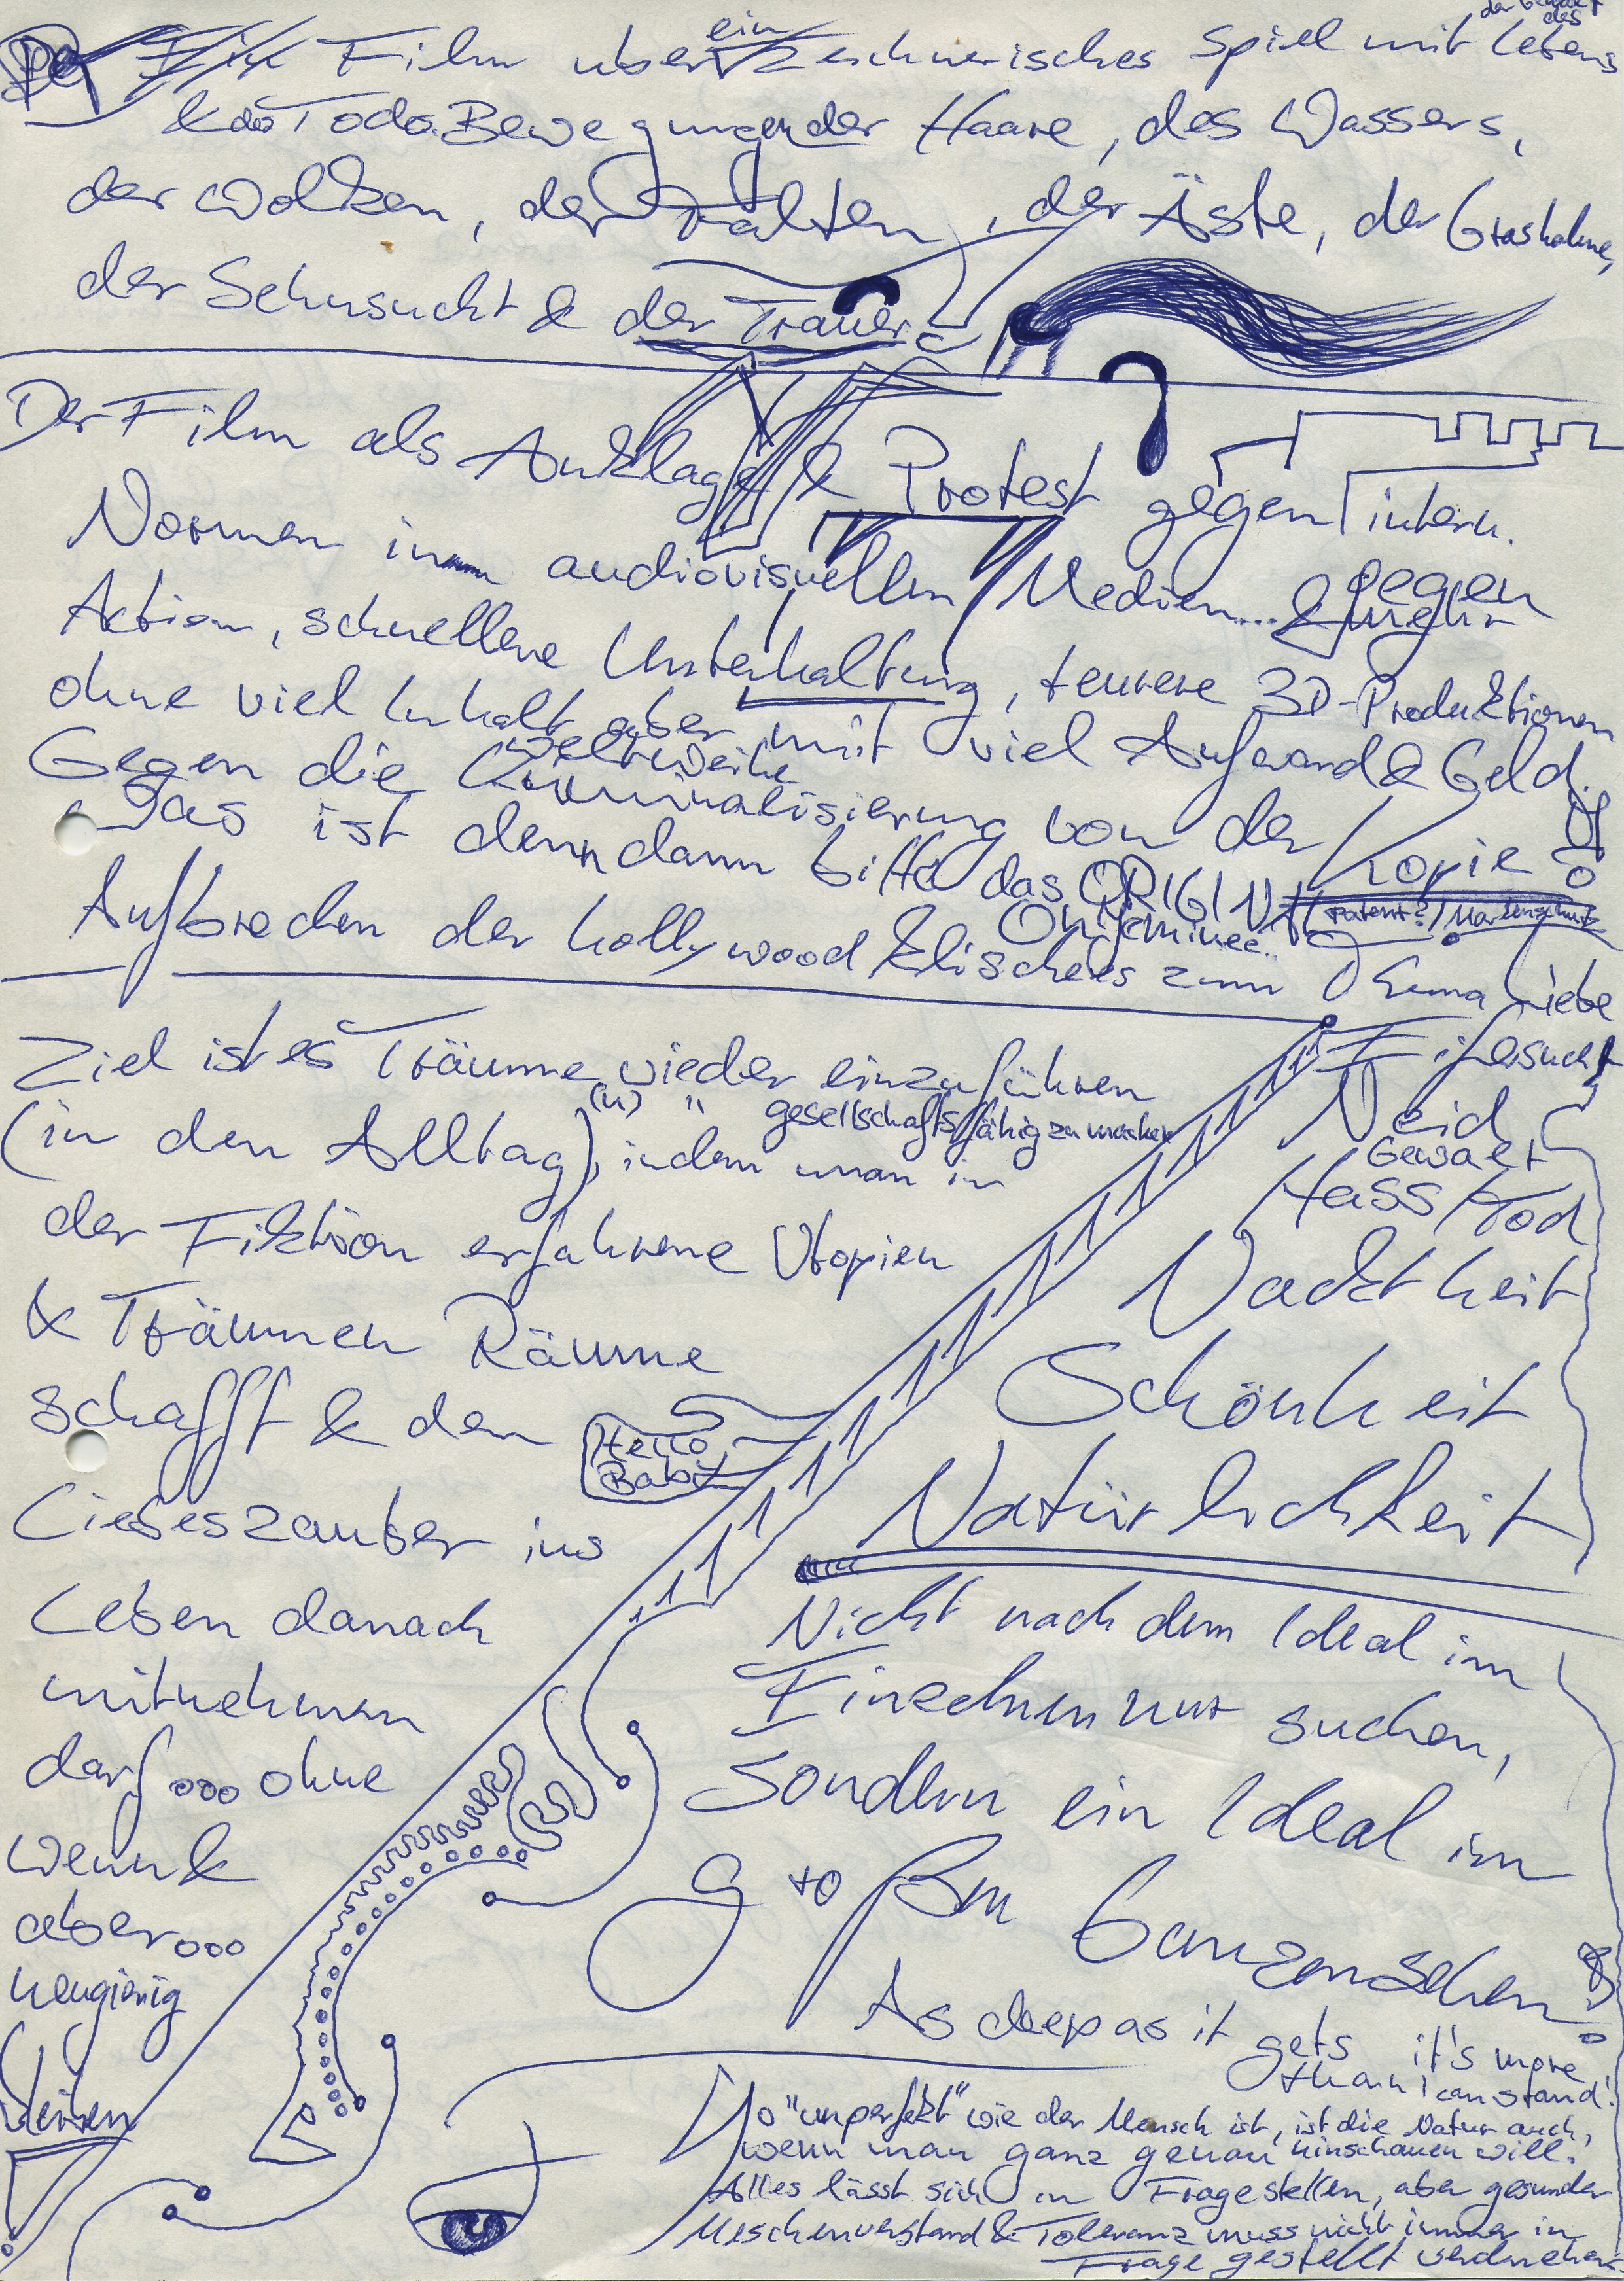 der Gewalt
des
ein
Film über zeichnerisches Spiel mit Lebens
& des Todes. Bewegungen der Haare, des Wassers,
der Wolken, der Falten, der Äste, der Grashalme,
der Sehnsucht & der Trauer
Der Film als Anklage & Protest gegen intern.
Normen in audiovisuellen Medien... & gegen mehr
Action, schnellere Unterhaltung, teurere 3D-Produktionen
ohne viel Inhalt aber mit viel Aufwand & Geld.
weltweite
Gegen die Kriminalisierung von der Kopie!
Was ist denn dann bitte das ORIGINAL (Patent?/Markenschutz
Oh jeminee..
Aufbrechen der hollywood Klischees zum Thema Liebe
Eifersucht
Neid
Gewalt
Hass / Tod
Nacktheit
Schönheit
Natürlichkeit
Ziel ist es Träume wieder einzuführen
(u) " gesellschaftsfähig zu machen
(in den Alltag), indem man in
der Fiktion erfahrene Utopien
& Träumen Räume
schafft & den
Liebeszauber ins
Leben danach
mitnehmen
darf ooo ohne
wenn &
aber ooo
neugierig
bleiben
Hello
Baby
Nicht nach dem Ideal im
Einzelnen nur suchen,
Sondern ein Ideal im
großen Ganzen sehen!
As deep as it gets it's more
than I can stand!
So "unperfekt" wie der Mensch ist, ist die Natur auch,
wenn man ganz genau hinschauen will.
Alles lässt sich in Frage stellen, aber gesunder
Meschenverstand & Toleranz muss nicht immer in
Frage gestellt werden